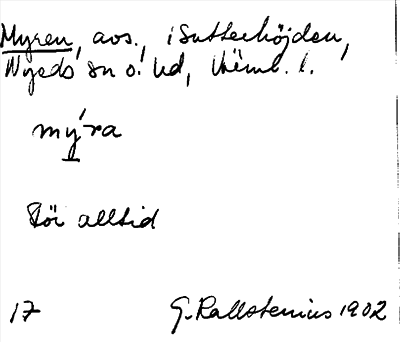 Myren, avs., i Sutterhöjden,
Nyeds sn o. hd, Värml. l.
mýra
För alltid
17 G. Kallstenius 1902